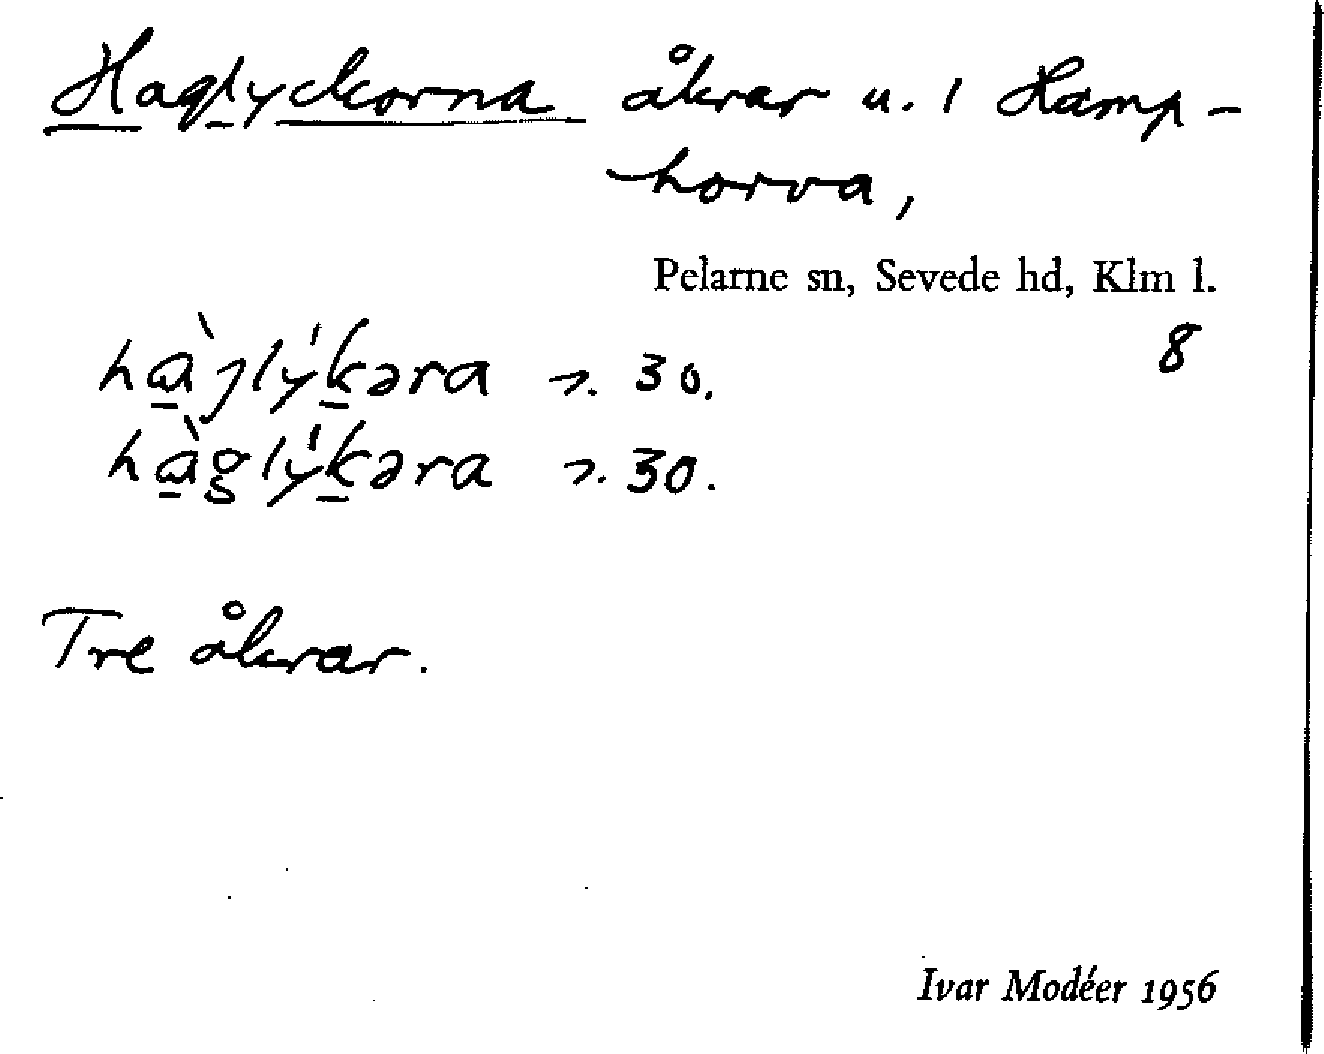 Haglyckorna åkrar u. 1 Hamp-
horva,
Pelarne sn, Sevede hd, Klm l.
8
hàɟlýkəra 7. 30.
hàglýkəra 7. 30.
Tre åkrar.
Ivar Modéer 1956